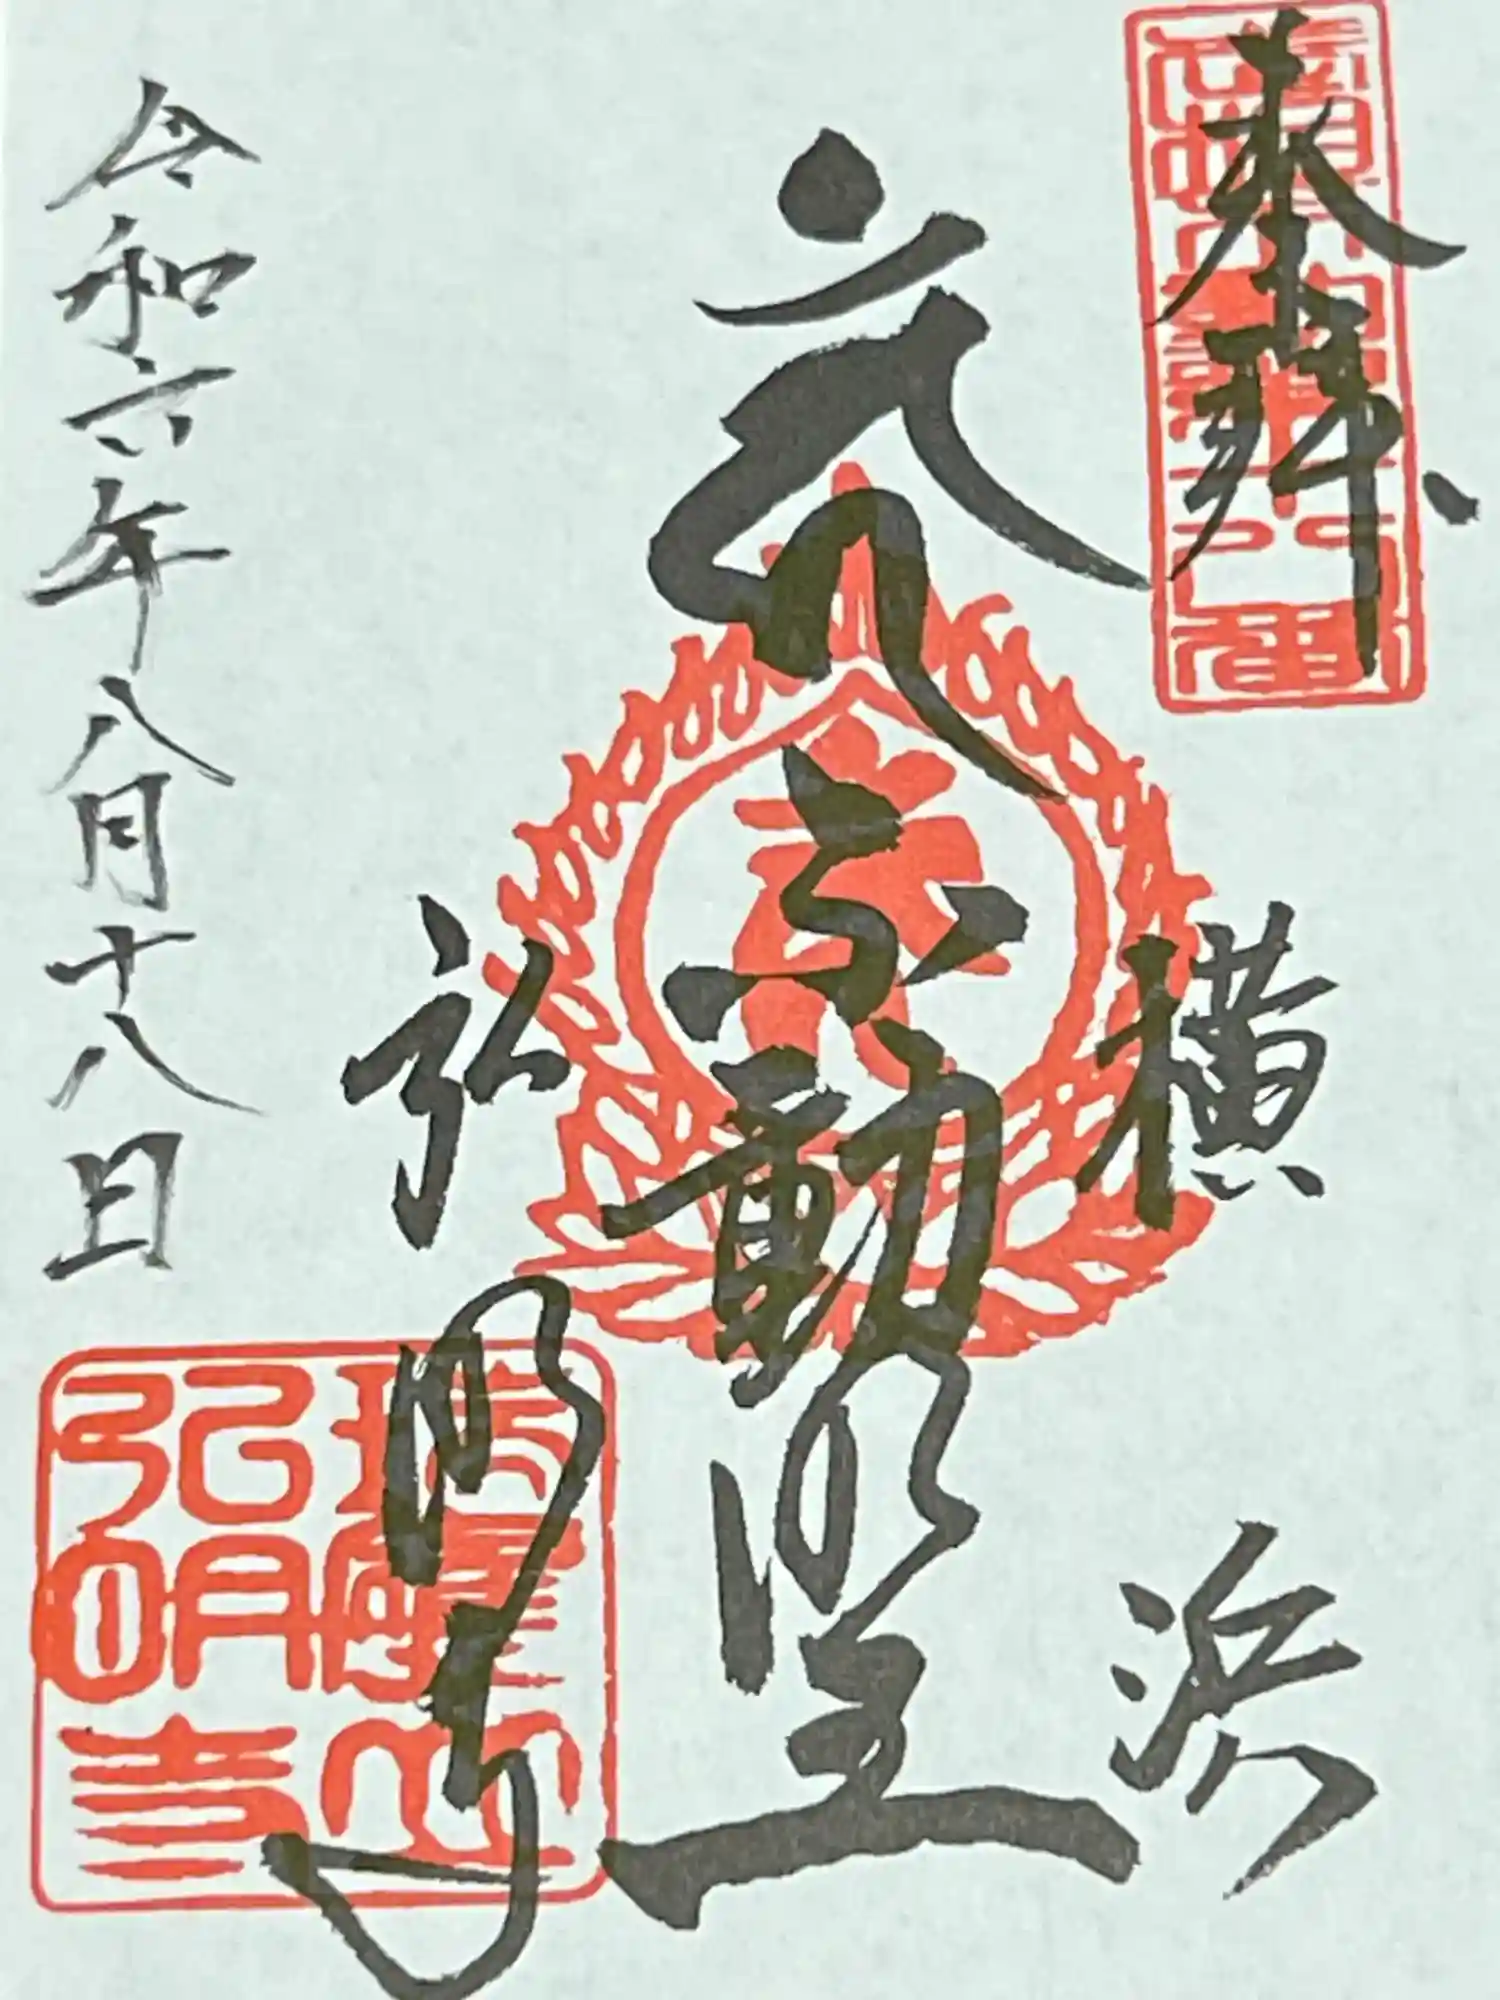 奉拝
横浜
不動明王
弘明寺
令和六年八月十八日
瑞應山
弘明寺